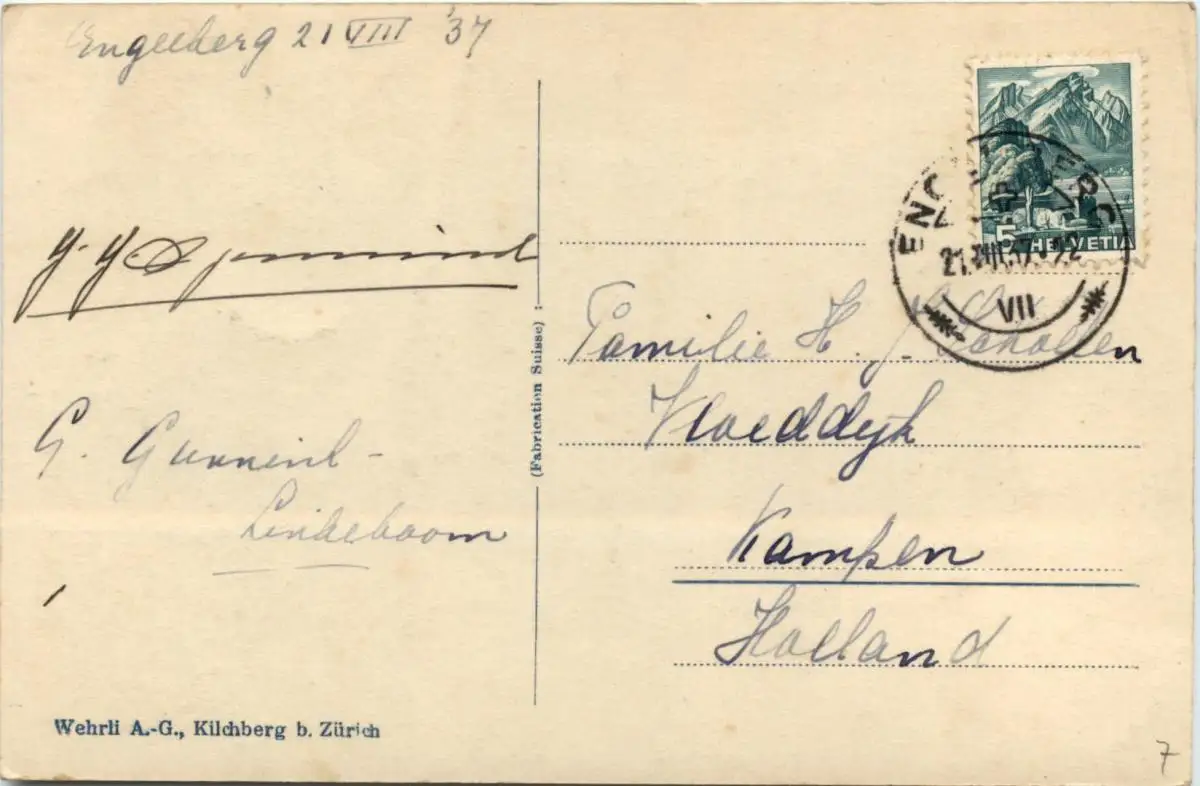 Engelberg 21 VIII '37
G. Gunnink-
Lindeboom
Wehrli A.-G., Kilchberg b. Zürich
(Fabrication Suisse) :
5 HELVETIA
ENGELBERG
21.VIII.37.-22
VII
Familie H. J. Scholten
Vloeddijk
Kampen
Holland
7